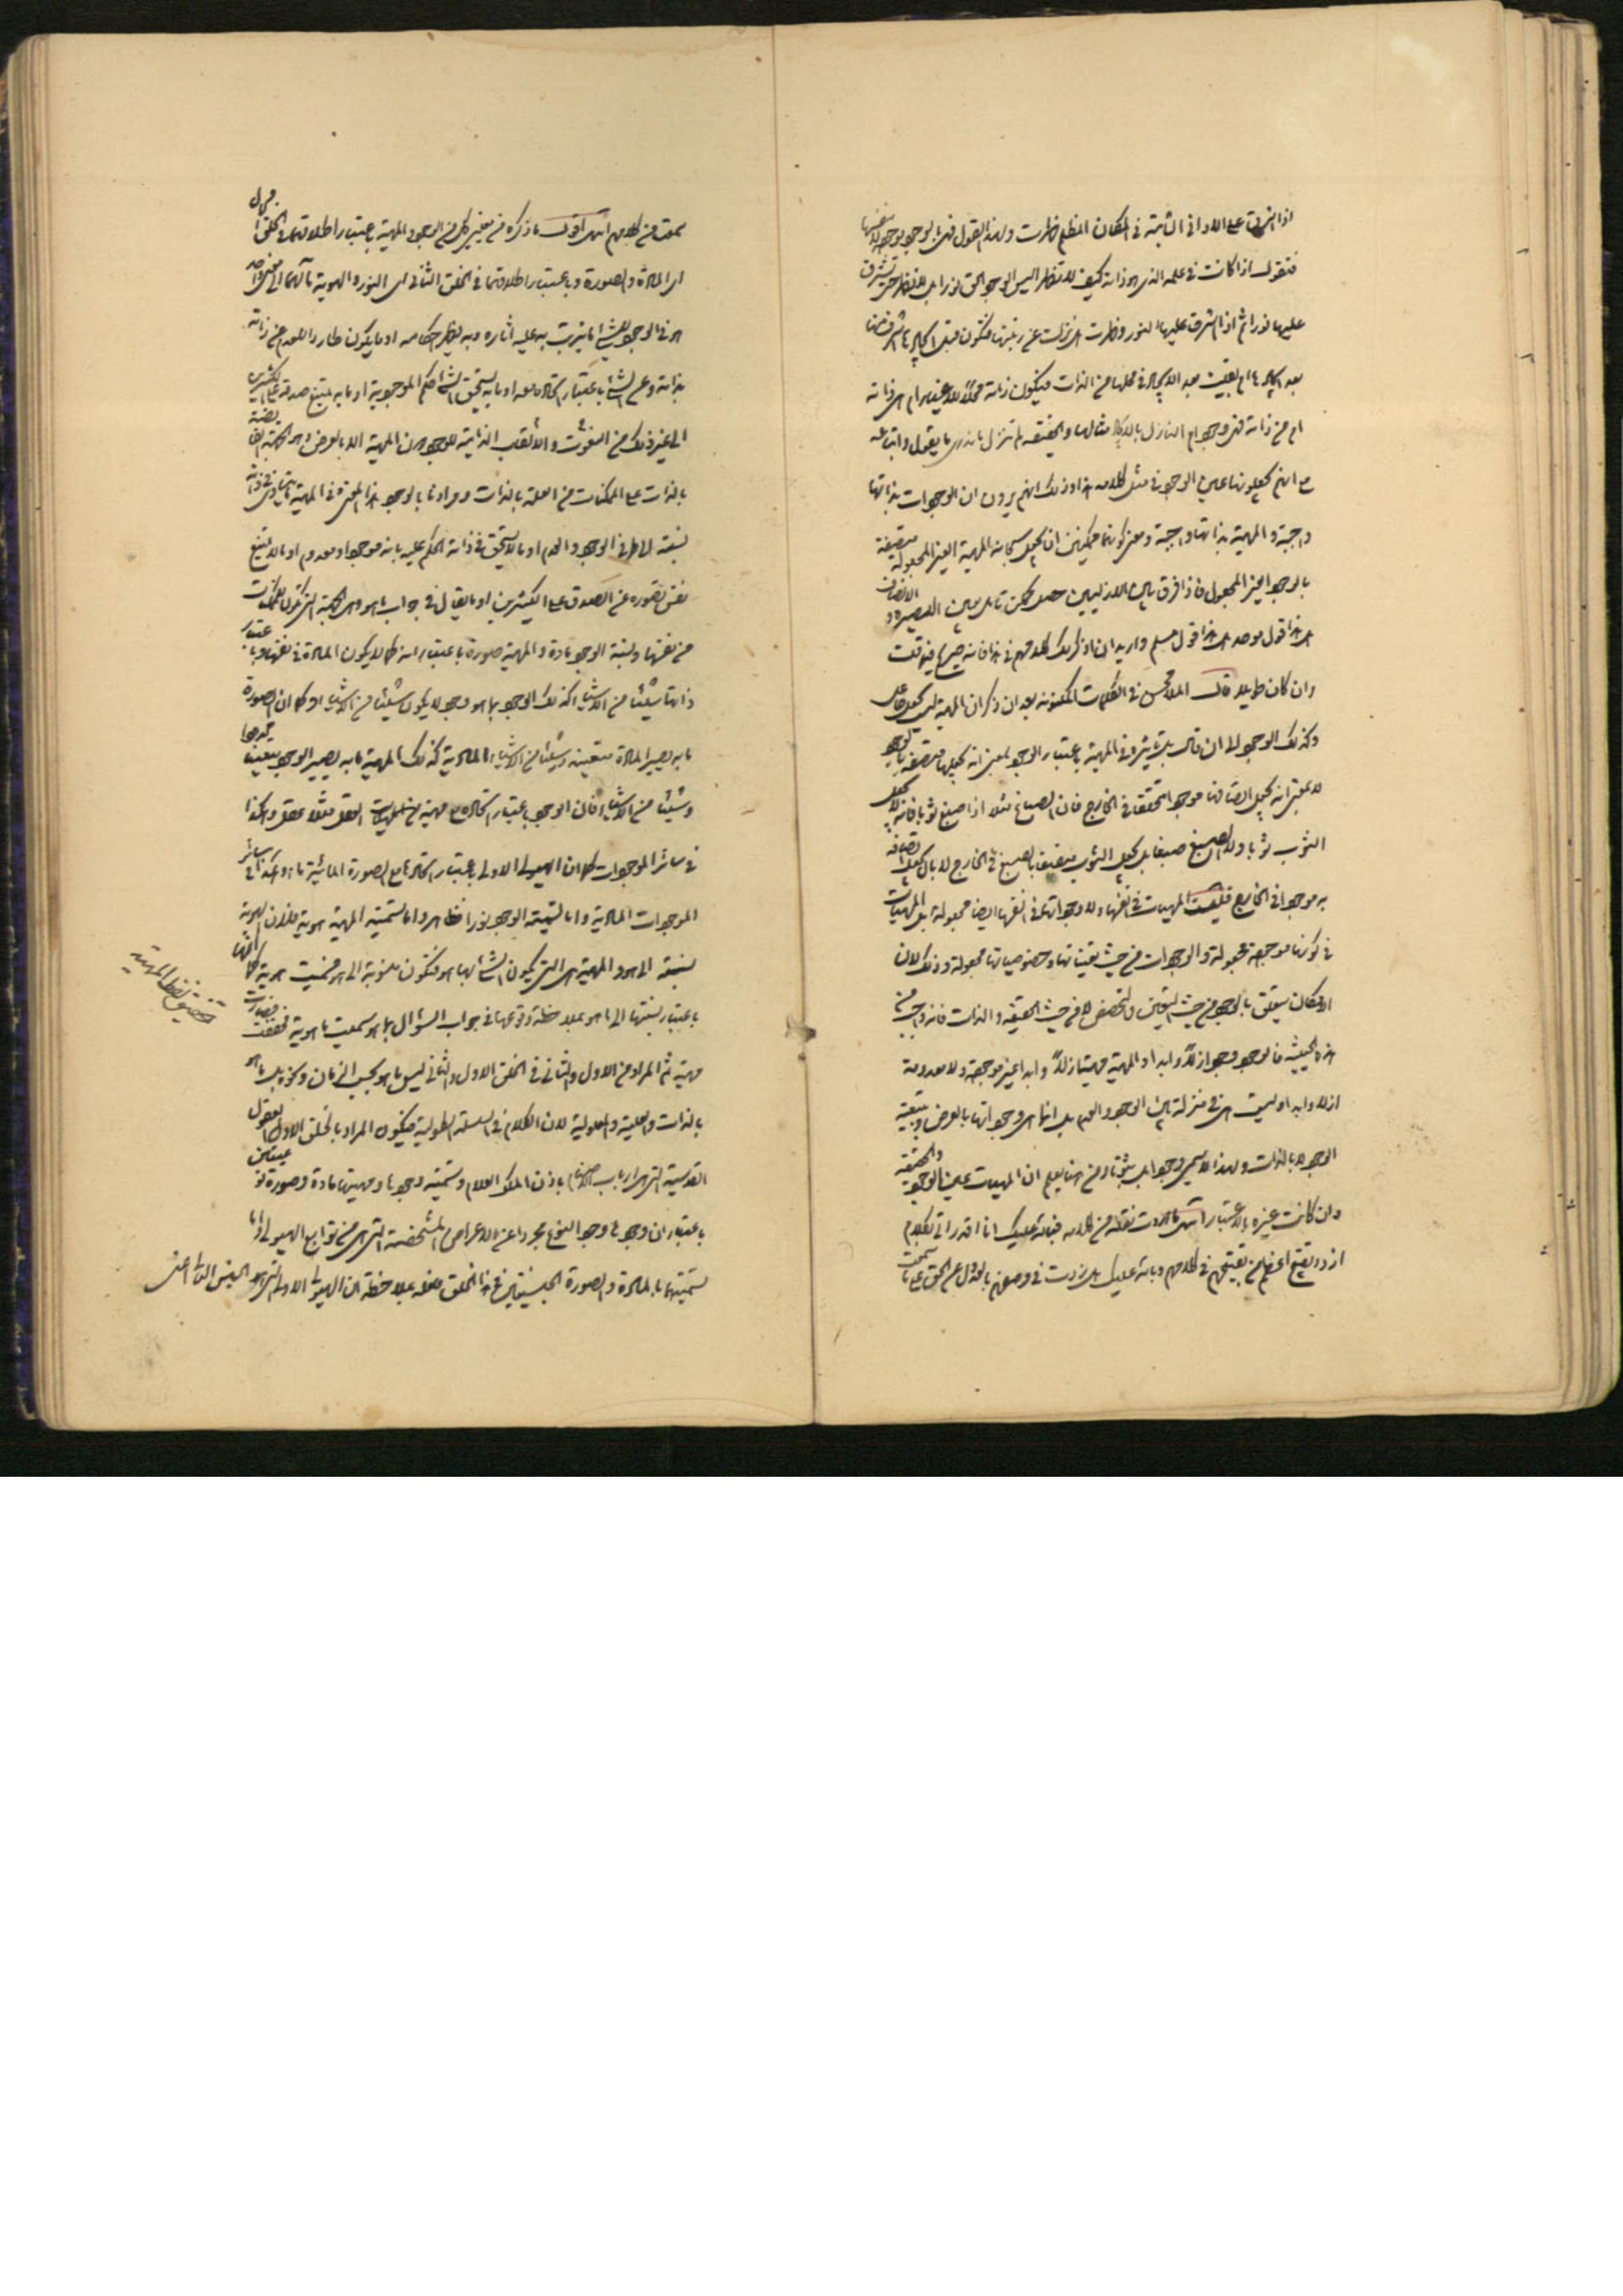 اذا اشرقت على الاواني الثابتة في المكان المظلم ظهرت ولهذا القول فهي بالوجود موجودة لا بنفسها
فنقول اذا كانت في علمه الذي هو ذاته كيف لا تظهر اليس الوجود الحق نورا بل لا تظهر حتى تشرق
عليها نورا ثم اذا اشرق عليها النور وظهرت هل نزلت عن رتبتها فتكون قبل
بعد ام بقيت بعد في محلها من الذات فيكون ذاته محلا للاغيار ام هي ذاته
ام من ذاته فهي وجود ام النازل مثالها والحقيقة لم تنزل ما ندري ما يقول واتباعه
مع انهم يجعلونها عين الوجود في مثل كلامه هذا وذلك انهم يرون ان الوجودات بذاتها
واجبة والمهية بذاتها واجبة ومعنى كونها ممكنين ان يجعل سبحانه المهية الغير المجعولة متصفة
بالوجود الغير المجعول فاذا فرق بين الازليين حصل ممكن
هل هذا قول موحد هل هذا قول مسلم واريد ان اذكر لك كلامهم في هذا فانه صريح فيما قلت
وان كان طويلا قال الملا محسن في الكلمات المكنونة بعد ان ذكر ان المهية ليس بجعل جاعل
وكذلك الوجود الى ان قال بل تاثيره في المهية باعتبار الوجود بمعنى انه يجعلها متصفة بالوجود
لا بمعنى انه يجعل اتصافها موجودا متحققا في الخارج فان الصباغ مثلا اذا صبغ ثوبا فانه لا يجعل
الثوب ثوبا ولا الصبغ صبغا بل يجعل الثوب متصفا بالصبغ في الخارج لا بان يجعل اتصافه
به موجودا في الخارج فليست المهيات في انفسها ولا وجوداتها في انفسها ايضا مجعولة بل المهيات
في كونها موجودة مجعولة والوجودات من حيث تعيناتها وخصوصياتها مجعولة وذلك لان
الامكان يتعلق بالوجود من حيث التعين والتخصص لا من حيث الحقيقة والذات فانه واجب من
هذه الحيثية فالوجود وجود ازلا وابدا والمهية مهية ازلا وابدا غير موجودة ولا معدومة
ازلا وابدا وليست هي في منزلة بين الوجود والعدم بل انما هي وجوداتها بالعرض وبتبعية
الوجود لا بالذات ولهذا لا يسمى وجودا بل ثبوتا ومن هنا يعلم ان المهيات عين الوجود والحقيقة
وان كانت غيره بالاعتبار انتهى ما اردت نقله من كلامه فبالله عليك انا اقدر اتي بكلام
ازد تقبيح اعظم من تقبيحهم في كلامهم وبالله عليك هل زدت في وصفهم بالعدول عن الحق على ما سمعت
سمعت من كلامهم انتهى اقول ما ذكره من معنى كل من الوجود والمهية باعتبار اطلاقهما في الخلق الاول
اي المادة والصورة وباعتبار اطلاقهما في الخلق الثاني اي النور والهوية مآلهما الى معنى واحد
هو في الوجود للشيء ما يترتب به عليه آثاره وبه يظهر احكامه او ما يكون طاردا للعدم عن ذاته
بذاته وعن الشيء باعتبار اتحاده معه او ما به يستحق الشيء حكم الموجودية او ما به يمتنع صدقه على كثيرين
الى غير ذلك من النعوت والالقاب الذاتية للوجود دون المهية الا بالعرض وهو الجهة
بالذات على الممكنات من العلة بالذات ومرادنا بالوجود هذا المعنى وفي المهية ما يتساوى في ذاته
نسبته الى طرفي الوجود والعدم او ما لا يستحق في ذاته الحكم عليه بانه موجود او معدوم او ما لا يمتنع
نفس تصوره عن الصدق على الكثيرين او ما يقال في جواب ما هو وهي الجهة التي تكون للممكنات
من نفسها وتسمية الوجود مادة والمهية صورة باعتبار انه كما لا يكون المادة في نفسها وباعتبار
ذاتها شيئا من الاشياء كذلك الوجود بما هو وجود لا يكون شيئا من الاشياء او كما ان الصورة
ما به يصير المادة متعينة وشيئا من الاشياء المادية كذلك المهية ما به يصير الوجود متعينا
وشيئا من الاشياء فان الوجود باعتبار اتحاده مع مهية من المهيات العقل مثلا عقل وهكذا
في سائر الموجودات كما ان الهيولى الاولى باعتبار اتحادها مع الصورة المائية ماء وهكذا في سائر
الموجودات المادية واما تسمية الوجود نورا فظاهر واما تسمية المهية هوية فلان الهوية
نسبة الى هو والمهية هي التي يكون الشيء بها هو فتكون منسوبة الى هو فسميت هوية كما انها
باعتبار نسبتها الى ما هو بملاحظة وقوعها في جواب السؤال بما هو سميت ماهوية فخففت فصارت
مهية ثم المراد من الاول والثاني في الخلق الاول والثاني ليس ما هو بحسب الزمان ونحوه بل ما هو
بالذات والعلية والمعلولية لان الكلام في السلسلة الطولية فيكون المراد بالخلق الاول العقول
القدسية التي هي ارباب الاصنام باذن الملك العلام وتسمية وجودها ومهيتها مادة وصورة نوعيتين
باعتبار ان وجودها وجود النوع مجردا عن الاعراض المشخصة التي هي من توابع الهيولى واما
تسميتهما بالمادة والصورة الجنسيتين في هذا الخلق فلعله بملاحظة ان الهيولى الاولى التي هو الجنس العالي اعني
تحقيق لفظ المهية